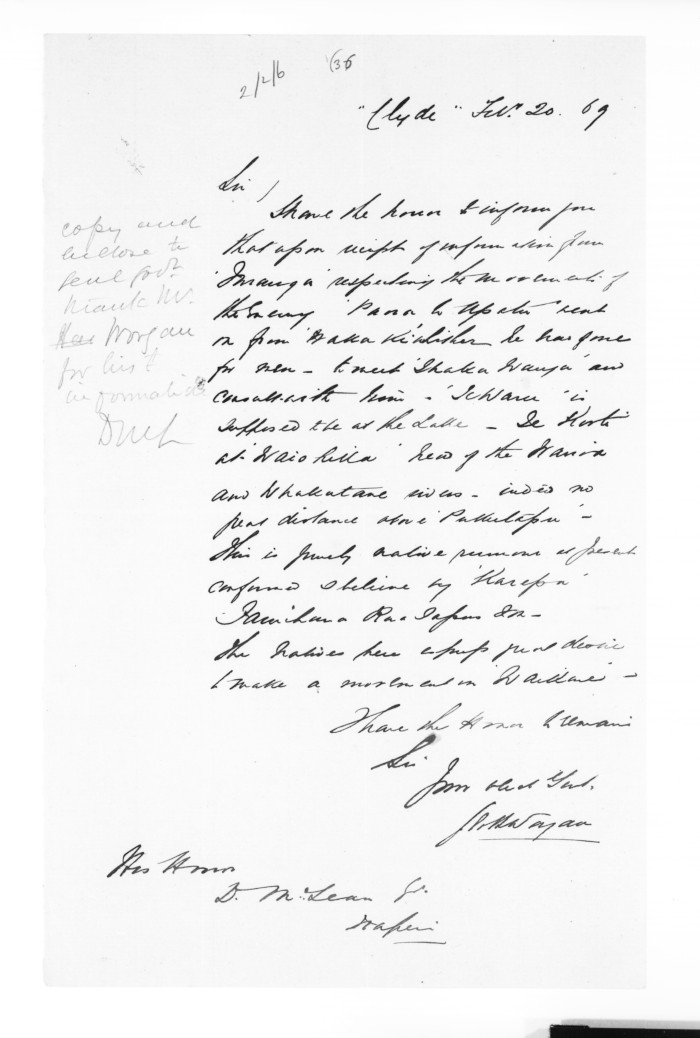 2/2/6 (36
"Clyde" Feby. 20. 69
Sir /
I have the honor to inform you
that upon receipt of information from
respecting the movements of
the Enemy Paora te Apatu went
on from he has gone
for men - to meet and
consult with him - is
supposed to be at the Lake - Te Kooti
at head of the
and Whakatane rivers - indeed no
great distance above 'Puketapu' -
This is purely native rumour at present
confirmed I believe by 'Karepa'
Tamihana
The Natives here express great desire
to make a movement on
I have the Honor to remain
Sir
Your obedt Servt.
Worgan
His Honor
D. McLean
Napier
copy and
enclose to
Genl Govt
thank Mr.
Worgan
for his
information